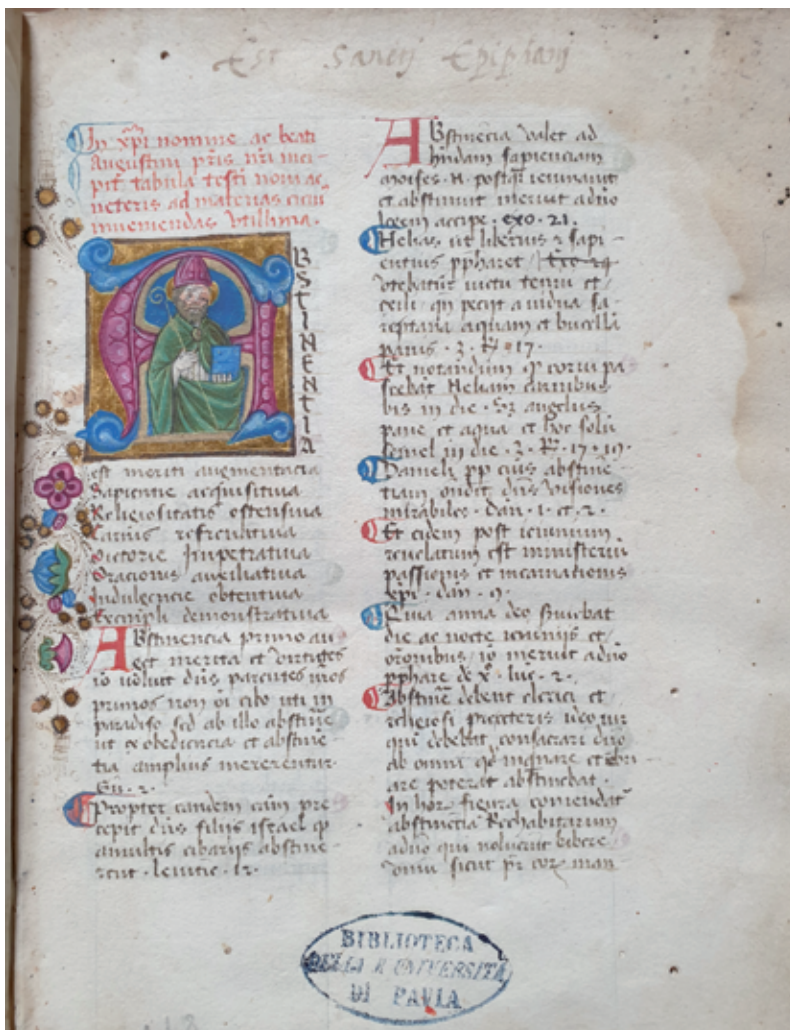 Est Sancti Epiphani
In xp̄i nomine ac beati
Augustini pr̄is nr̄i inci-
pit tabula testi noui ac
ueteris ad materias
inueniendas vtillima.
ABSTINENTIA
est meriti augmentatia
Sapientie acquisitiua
Religiositatis ostensiua
Carnis refrenatiua
Victorie Impetratiua
Oracionis auxiliatiua
Indulgencie obtentiua
Exempli demonstratiua
Abstinencia primo au-
get merita et virtutes
io voluit dn̄s parentes nr̄os
primos non oī cibo uti in
paradiso sed ab illo abstinē
ut ex obediencia et abstinē-
tia amplius mererentur
Gn̄. 2.
Propter eandem cām pre
cepit dn̄s filijs israel qp
amultis cibarijs abstine-
rent. leuitic. 12.
Abstinēcia valet ad
hn̄dam sapienciam
moises. N. postq̄ ieiunauit
et abstinuit meruit adn̄o
legem accipe. exo. 21.
Helias ut liberius et sapi-
entius pp̄haret
vtebatur victu tenui et
petijt a uidua sa-
reptana aquam et bucellā
panis. 3. R. 17.
Et notandum qp corui pa
scebāt Heliam carnibus
bis in die. Sz angelus
pane et aqua et hoc solū
semel in die. 3. R. 17. 19.
Danieli pp cius abstinē-
tiam ōndit dn̄s visiones
mirabiles. dan. 1. et. 2.
Et eidem post ieiunium
reuelatum est ministeriū
passionis et incarnationis
xp̄i. dan. 9.
anna deo seruiebat
die ac nocte ieiunijs et
orōnibus io meruit adn̄o
pp̄hare de x̄. luc. 2.
Abstinē debent clerici et
religiosi preceteris
qui debebāt consacrari dn̄o
ab omni qd ebri-
are poterat abstinebat.
In hoc figura comendat
abstinētia Rechabitarum
adn̄o qui noluerūt bibere
vinū sicut pr̄ eorz man-
BIBLIOTECA
DELLA R UNIVERSITÀ
DI PAVIA